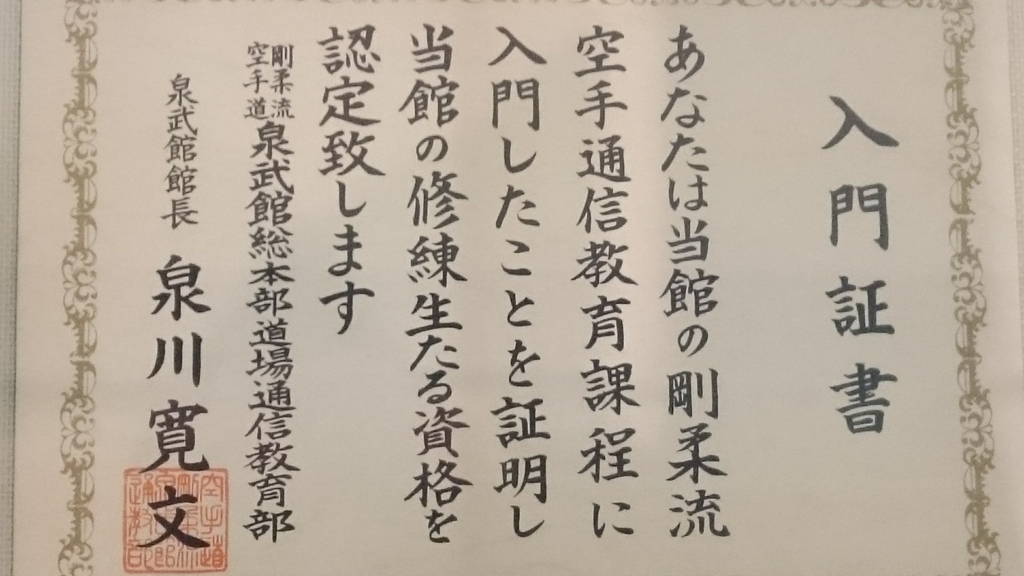 入門証書
あなたは当館の剛柔流
空手通信教育課程に
入門したことを証明し
当館の修練生たる資格を
認定致します
剛柔流
空手道
泉武館総本部道場通信教育部
泉武館館長 泉川寛文